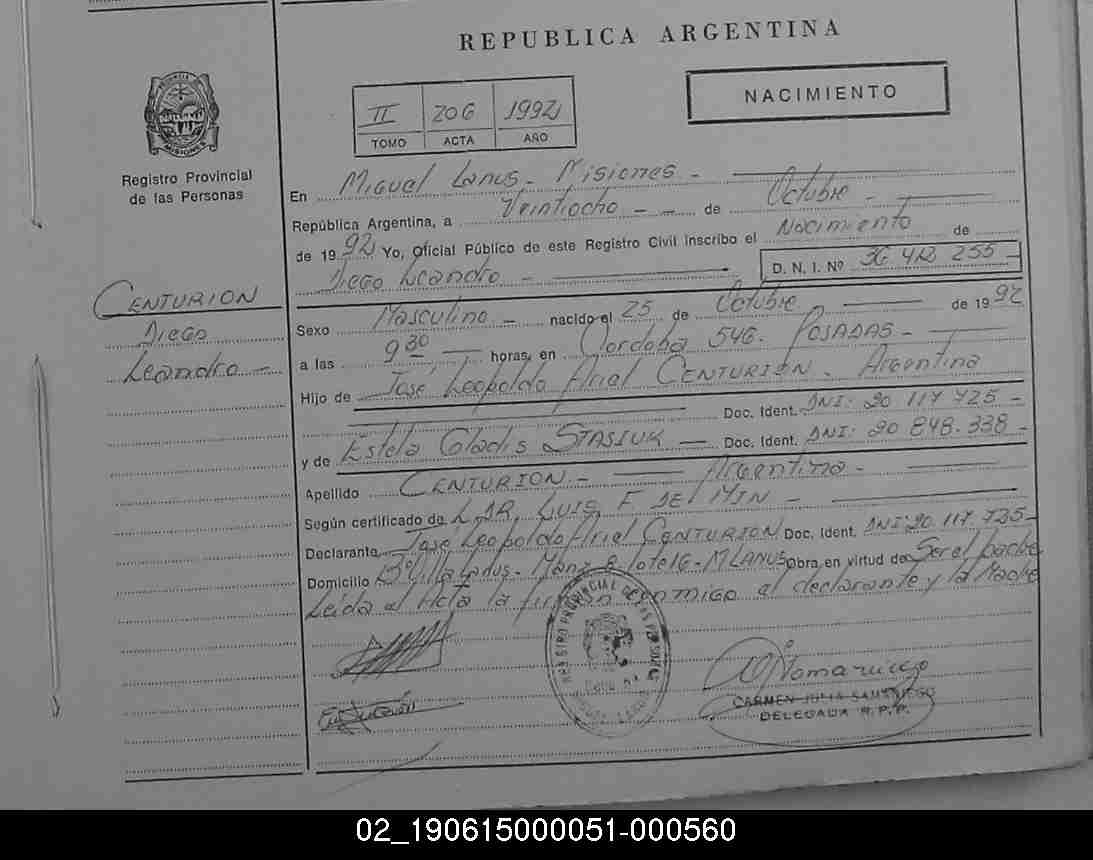 REPUBLICA ARGENTINA
NACIMIENTO
II 206 1992
TOMO ACTA AÑO
PROVINCIA DE MISIONES
Registro Provincial
de las Personas
CENTURION
Diego
Leandro -
En Miguel Lanus - Misiones -
República Argentina, a Veintiocho - - de Octubre -
de 1992 Yo, Oficial Público de este Registro Civil inscribo el Nacimiento de
Diego Leandro - D. N. I. Nº 36 412 255 -
Sexo Masculino - nacido el 25 de Octubre de 1992
a las 9 30 horas, en Cordoba 546. POSADAS -
Hijo de José Leopoldo Ariel CENTURION - Argentina
Doc. Ident. DNI: 20 117 725 -
y de Estela Gladis STASIUK - Doc. Ident. DNI: 20 848.338 -
Apellido CENTURION - Argentina -
Según certificado de L DR. LUIS F DE MIN -
Declarante José Leopoldo Ariel CENTURION Doc. Ident. DNI 20.117.725-
Domicilio Bº Villa Lanus - Manz 8 lote 16 - M LANUS Obra en virtud de Ser el padre
Leida el Acta la firman conmigo el declarante y la Madre
REGISTRO PROVINCIAL DE LAS PERSONAS
CARMEN JULIA SAMANIEGO
DELEGADA R. P. P.
02_190615000051-000560